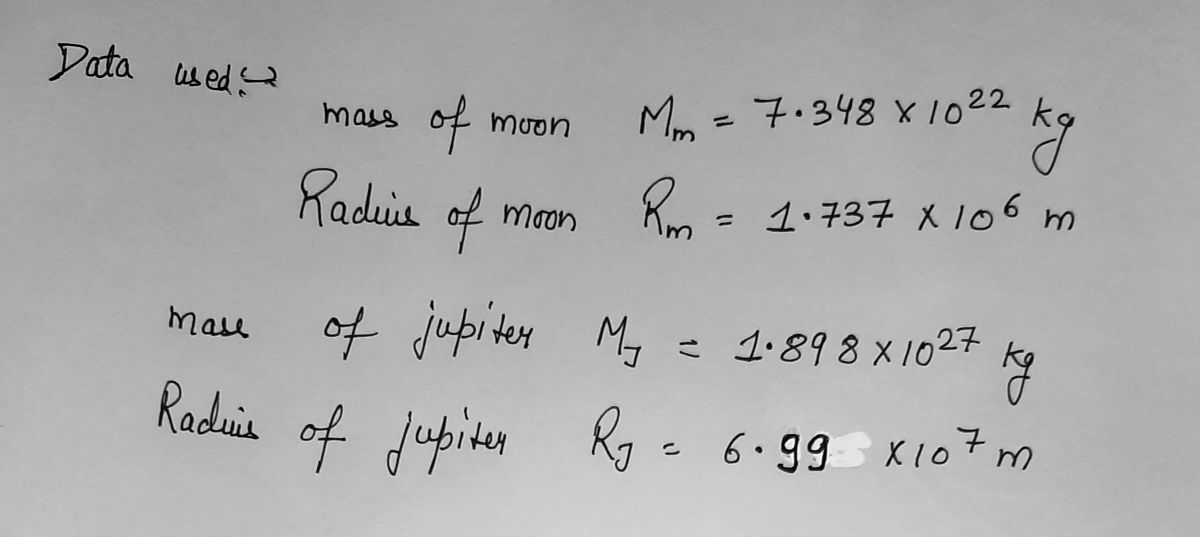 Data used:→
mass of moon Mm = 7.348 x 10^22 kg
Radius of moon Rm = 1.737 x 10^6 m
mass of jupiter MJ = 1.898 x 10^27 kg
Radius of jupiter RJ = 6.99 x 10^7 m